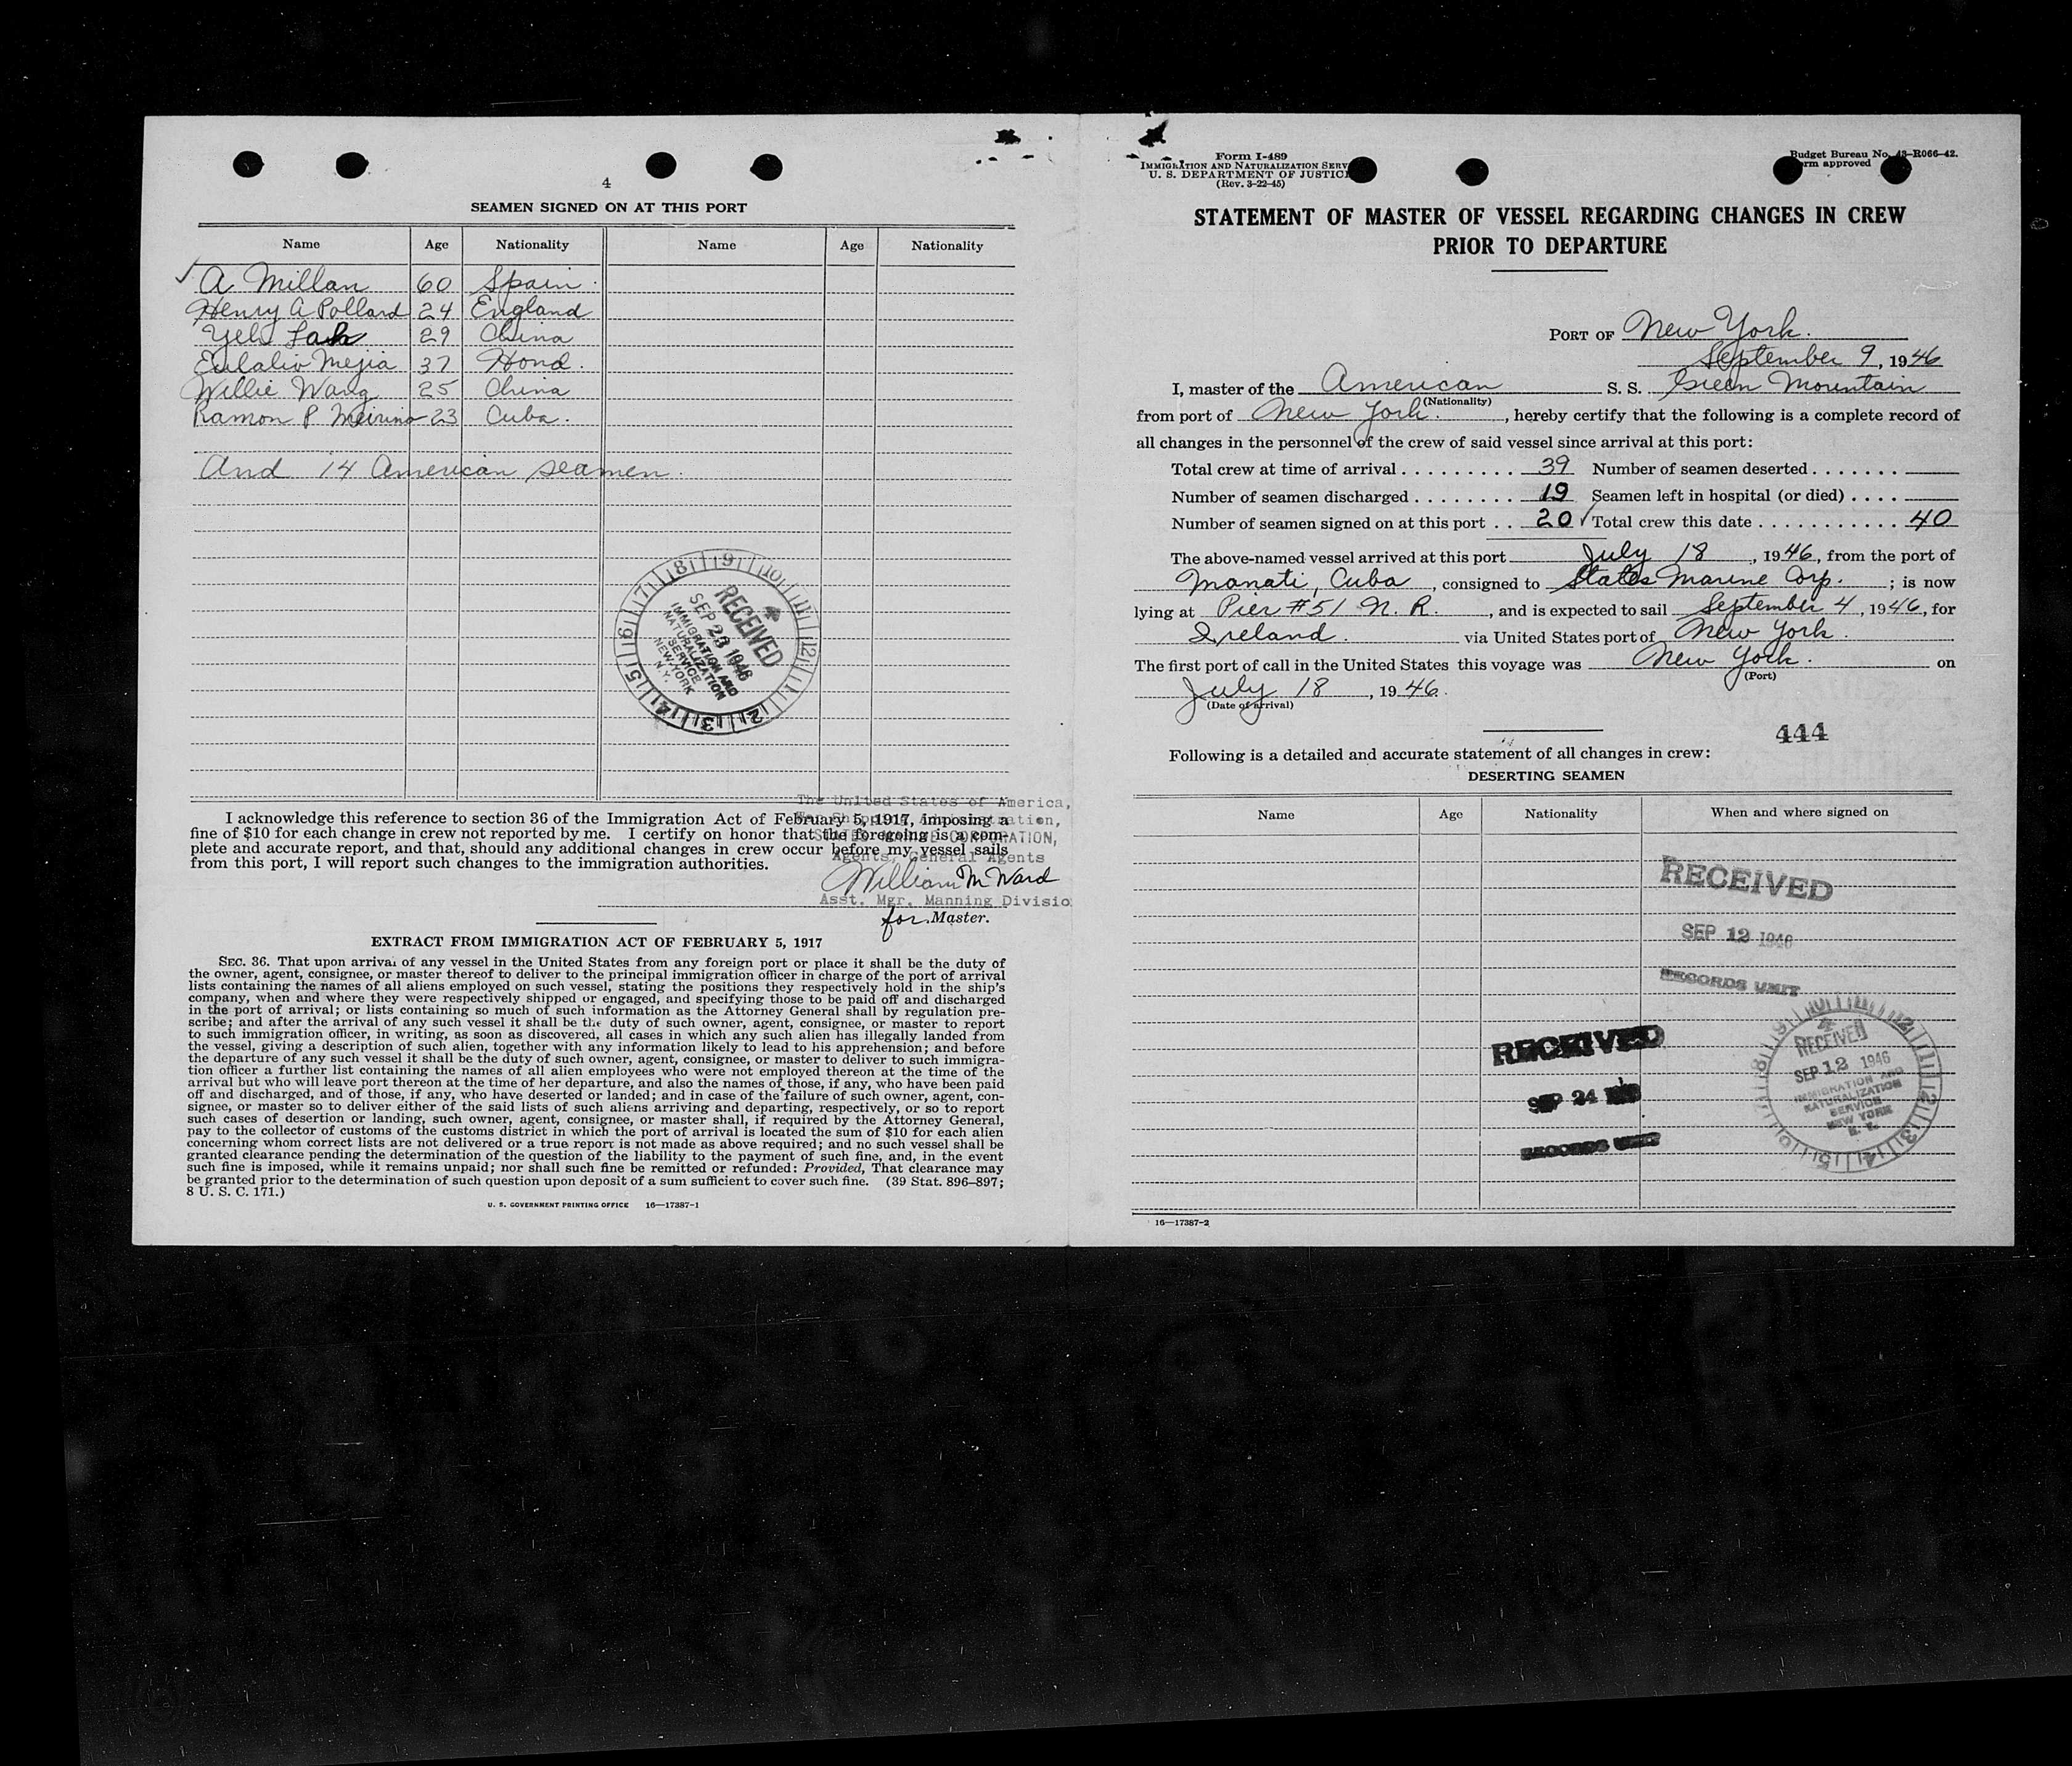 4
SEAMEN SIGNED ON AT THIS PORT
Name Age Nationality Name Age Nationality
✓ A Millan 60 Spain.
Henry A Pollard 24 England
Yeh 29 China
Eulalio Mejia 37 Hond.
Willie Wang 25 China
Ramon P Meirino 23 Cuba.
And 14 American seamen.
RECEIVED
SEP 23 1946
IMMIGRATION AND
NATURALIZATION
SERVICE
NEW YORK
N. Y.
The United States of America,
I acknowledge this reference to section 36 of the Immigration Act of February 5, 1917, imposing a
fine of $10 for each change in crew not reported by me. I certify on honor that the foregoing is a com-
plete and accurate report, and that, should any additional changes in crew occur before my vessel sails
from this port, I will report such changes to the immigration authorities.
Agents, General Agents
William M Ward
Asst. Mgr. Manning Divisio
for Master.
EXTRACT FROM IMMIGRATION ACT OF FEBRUARY 5, 1917
SEC. 36. That upon arrival of any vessel in the United States from any foreign port or place it shall be the duty of
the owner, agent, consignee, or master thereof to deliver to the principal immigration officer in charge of the port of arrival
lists containing the names of all aliens employed on such vessel, stating the positions they respectively hold in the ship's
company, when and where they were respectively shipped or engaged, and specifying those to be paid off and discharged
in the port of arrival; or lists containing so much of such information as the Attorney General shall by regulation pre-
scribe; and after the arrival of any such vessel it shall be the duty of such owner, agent, consignee, or master to report
to such immigration officer, in writing, as soon as discovered, all cases in which any such alien has illegally landed from
the vessel, giving a description of such alien, together with any information likely to lead to his apprehension; and before
the departure of any such vessel it shall be the duty of such owner, agent, consignee, or master to deliver to such immigra-
tion officer a further list containing the names of all alien employees who were not employed thereon at the time of the
arrival but who will leave port thereon at the time of her departure, and also the names of those, if any, who have been paid
off and discharged, and of those, if any, who have deserted or landed; and in case of the failure of such owner, agent, con-
signee, or master so to deliver either of the said lists of such aliens arriving and departing, respectively, or so to report
such cases of desertion or landing, such owner, agent, consignee, or master shall, if required by the Attorney General,
pay to the collector of customs of the customs district in which the port of arrival is located the sum of $10 for each alien
concerning whom correct lists are not delivered or a true report is not made as above required; and no such vessel shall be
granted clearance pending the determination of the question of the liability to the payment of such fine, and, in the event
such fine is imposed, while it remains unpaid; nor shall such fine be remitted or refunded: Provided, That clearance may
be granted prior to the determination of such question upon deposit of a sum sufficient to cover such fine. (39 Stat. 896–897;
8 U. S. C. 171.)
U. S. GOVERNMENT PRINTING OFFICE 16—17387-1
Form I-489
IMMIGRATION AND NATURALIZATION SERV
U. S. DEPARTMENT OF JUSTIC
(Rev. 3-22-45)
Budget Bureau No. 43-R066-42.
rm approved
STATEMENT OF MASTER OF VESSEL REGARDING CHANGES IN CREW
PRIOR TO DEPARTURE
PORT OF New York.
September 9, 1946
I, master of the American S. S. Green Mountain
(Nationality)
from port of New York., hereby certify that the following is a complete record of
all changes in the personnel of the crew of said vessel since arrival at this port:
Total crew at time of arrival . . . . . . . . . . 39 Number of seamen deserted . . . . . . .
Number of seamen discharged . . . . . . . . 19 Seamen left in hospital (or died) . . . .
Number of seamen signed on at this port . . 20 ✓ Total crew this date . . . . . . . . . . . . 40
The above-named vessel arrived at this port July 18, 1946, from the port of
Manati, Cuba, consigned to States Marine Corp.; is now
lying at Pier #51 N. R., and is expected to sail September 4, 1946, for
Ireland. via United States port of New York.
The first port of call in the United States this voyage was New York. on
(Port)
July 18, 1946.
(Date of arrival)
444
Following is a detailed and accurate statement of all changes in crew:
DESERTING SEAMEN
Name Age Nationality When and where signed on
RECEIVED
SEP 12 1946
RECORDS UNIT
RECEIVED
SEP 24
RECORDS UNIT
RECEIVED
SEP 12 1946
IMMIGRATION AND
NATURALIZATION
SERVICE
NEW YORK
N. Y.
16—17387-2